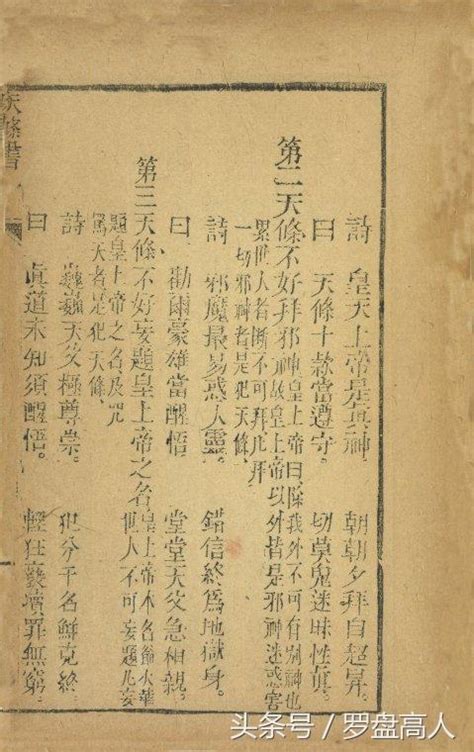 詩　皇天上帝是眞神。　朝朝夕拜自超昇。
曰　天條十款當遵守。　切莫鬼迷昧性眞。
第二天條不好拜邪神
皇上帝曰除我外不可有別神也
故皇上帝以外皆是邪神迷惑害
累世人者斷不可拜凡拜
一切邪神者是犯天條、
詩　邪魔最易惑人靈。　錯信終爲地獄身。
曰　勸爾豪雄當醒悟。　堂堂天父急相親。
第三天條不好妄題皇上帝之名
皇上帝本名爺火華
世人不可妄題凡妄
題皇上帝之名及咒
罵天者是犯天條、
詩　巍巍天父極尊崇。　犯分干名鮮克終。
曰　眞道未知須醒悟。　輕狂褻瀆罪無窮。
天條書
头条号 / 罗盘高人